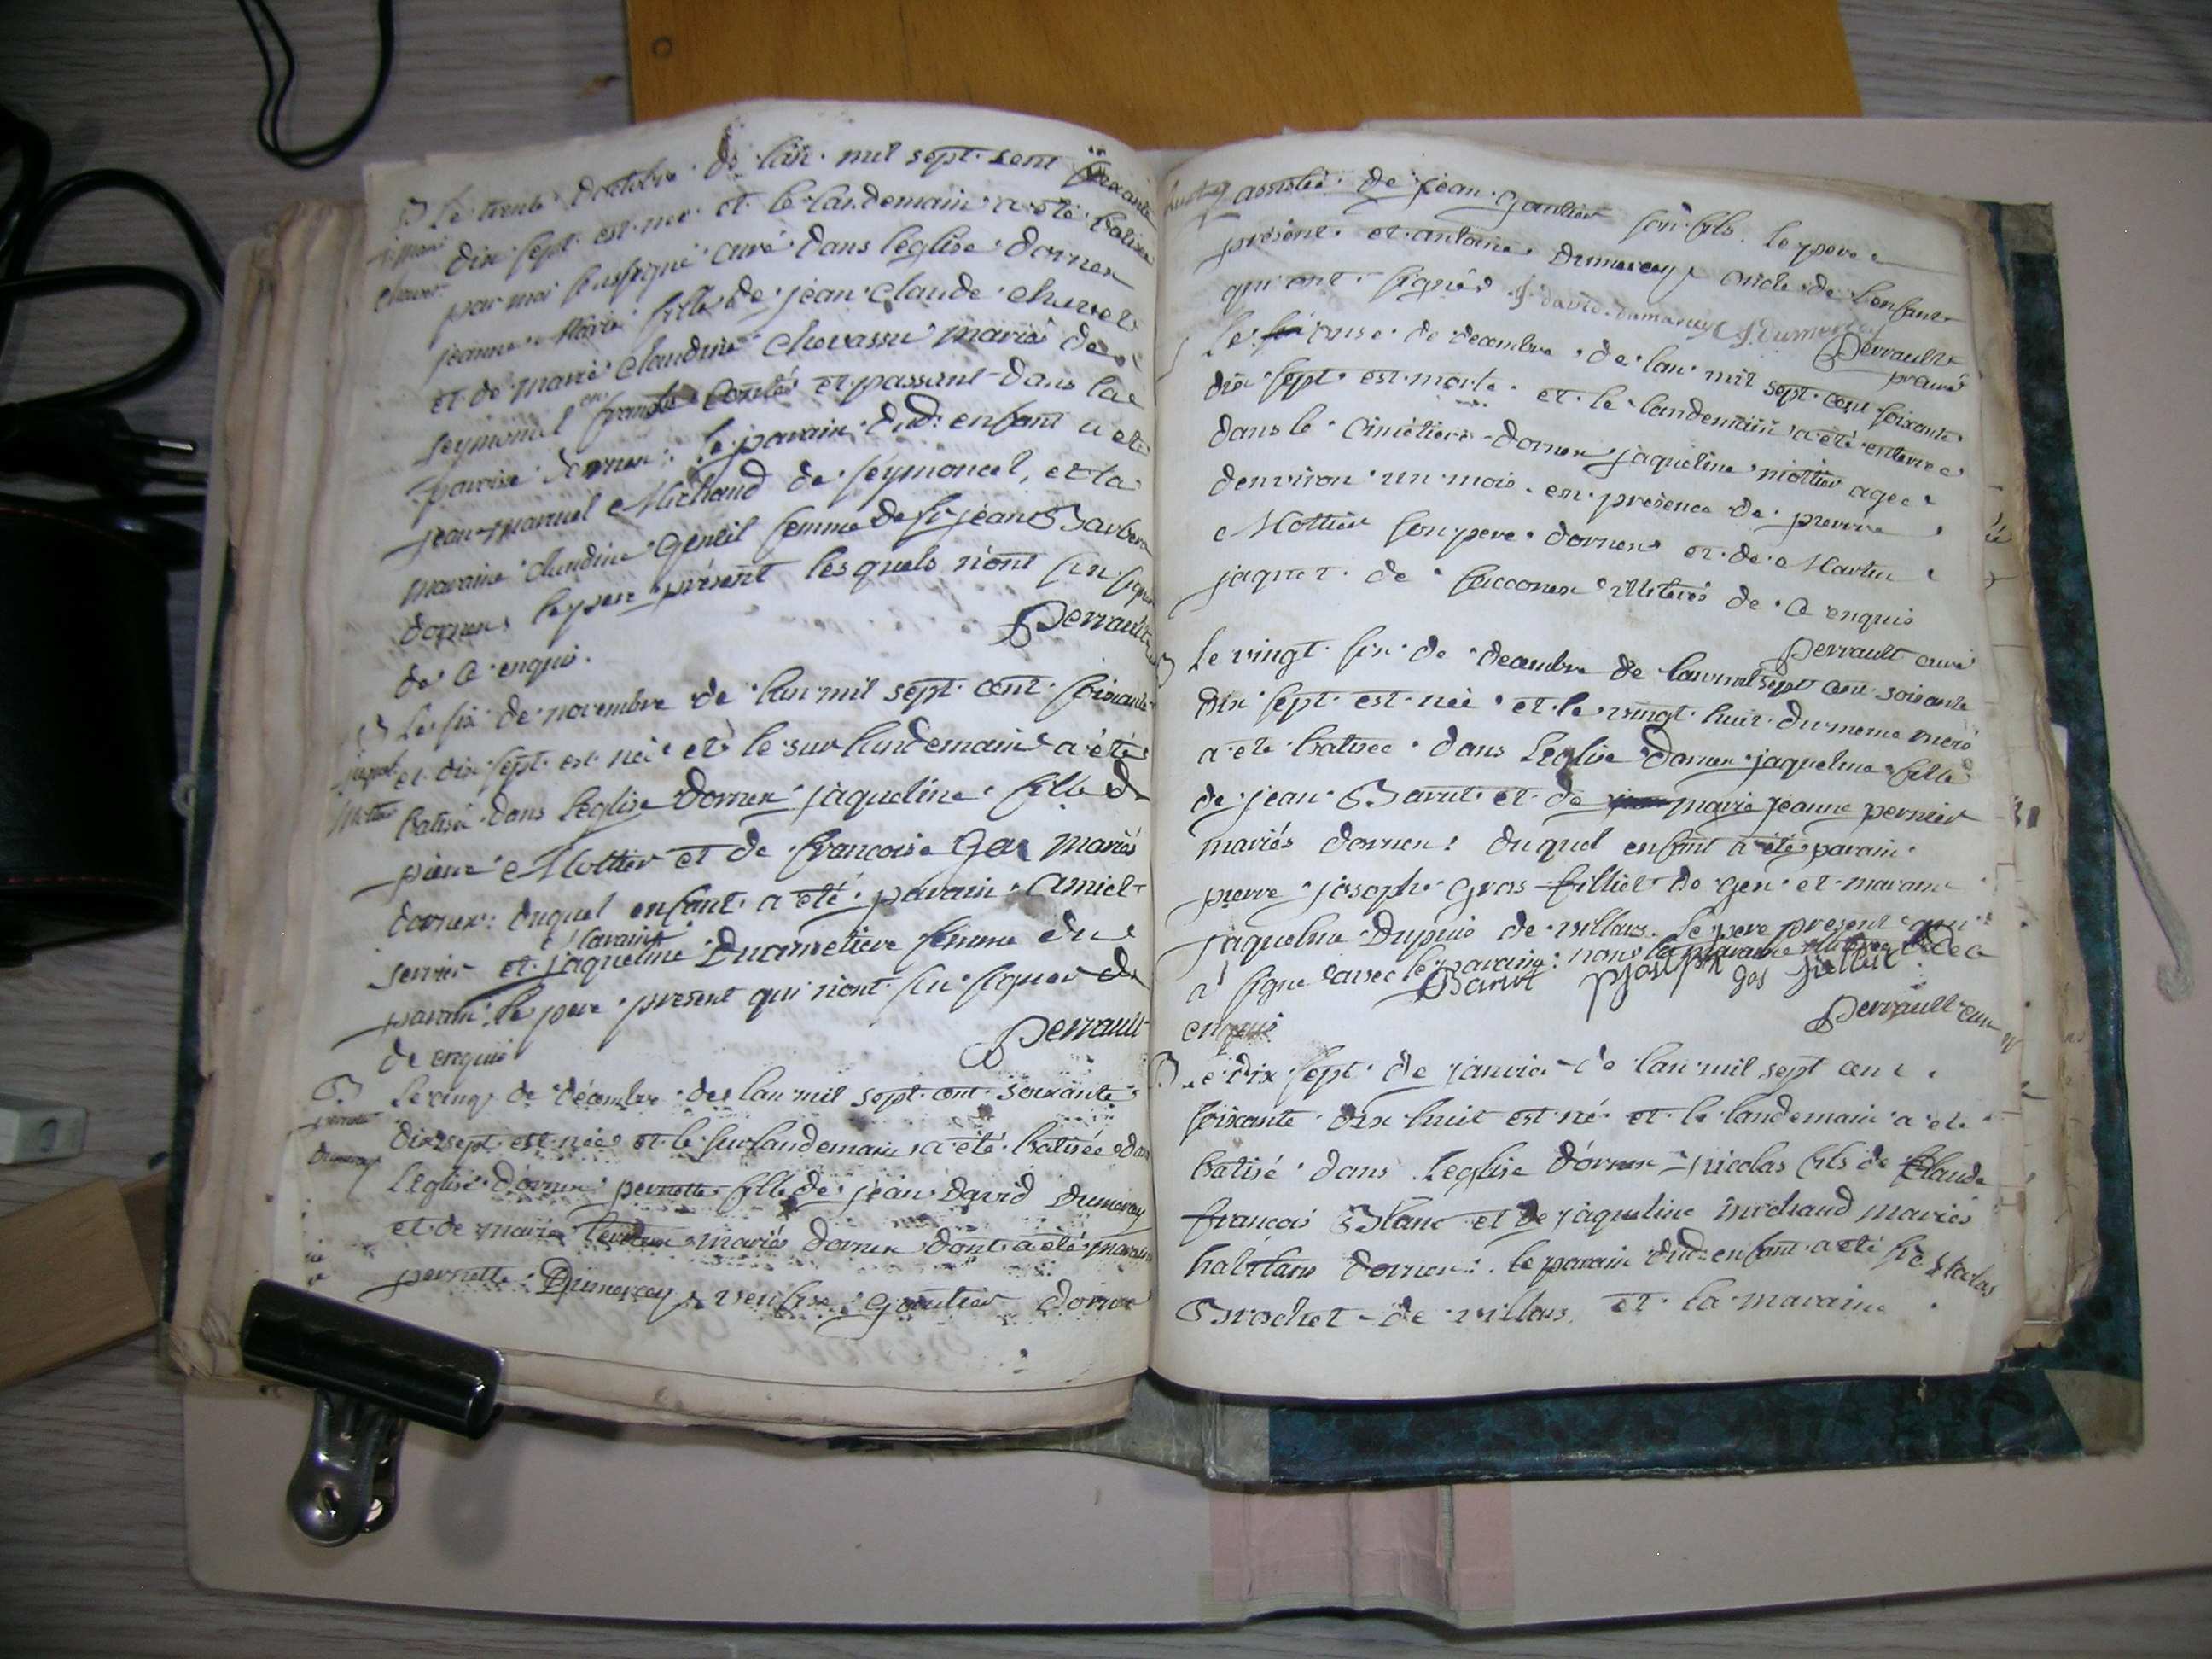 B Le trente doctobre de lan mil sept cent soixante
dix sept est née et le landemain a été batisée
par moi soussigné curé dans leglise dornex
jeanne Marie fille de jean claude
Chavet
et de marie claudine chevassu mariés de
Leymoncel en franche Comté et passant dans la
paroisse dornex: le parain dud: enfant a eté
jean Michaud de seymoncel, et la
maraine claudine Gentil femme de jean Barbera
dornex le pere présent lesquels niont su signer
de ce enquis.
Perrault
B Le six de novembre de lan mil sept cent soixante
et dix sept est née et le surlundemain a été
Mottier batisée dans leglise dornex jaqueline fille de
pierre Mottier et de francoise Gex mariés
dornex: duquel enfant a été parain Amiel
servier et maraine jaqueline femme du
parain. le pere present qui niont su signer de
de enquis
Perrault
B Le cinq de décembre de lan mil sept cent soixante
pernette dix sept est née et le surlandemain a été batisée dans
Dumarey Leglise dornex pernette fille de jean David Dumarey
et de marie mariés dornex dont a été maraine
pernette Dumarey veufve gautier dornex
assistée de jean gautier son fils. le pere
présent et antoine Dumarey oncle de lenfant
qui ont signés J. david dumarey
Perrault
curé
Le onse de decembre de lan mil sept cent soixante
dix sept est morte et le landemain a été enterree
dans le cimetiere dornex jaqueline mottier agee
denviron un mois en presence de pierre
Mottier son pere dornex et de Martin
jaquet de saconex illiterés de ce enquis
Perrault curé
B Le vingt six de decembre de lan mil sept cent soixante
dix sept est née et le vingt huit du meme mois
a eté batisée dans Leglise dornex jaqueline fille
de jean Barut et de marie jeanne pernier
mariés dornex: duquel enfant a été parain
pierre joseph Gros filliet de gex et maraine
jaqueline Dupuis de villars. Le pere present qui
a signé avec le parain: non la maraine illiterée de ce
Barut P joseph gos filliet
enquis
Perrault curé
B Le dix sept de janvier de lan mil sept cent
soixante dix huit est né et le landemain a eté
batisé dans leglise dornex nicolas fils de Claude
francois Blanc et de jaqueline michaud mariés
habitans dornex: le parain dud: enfant a eté sr Nicolas
Brochet de villars et la maraine